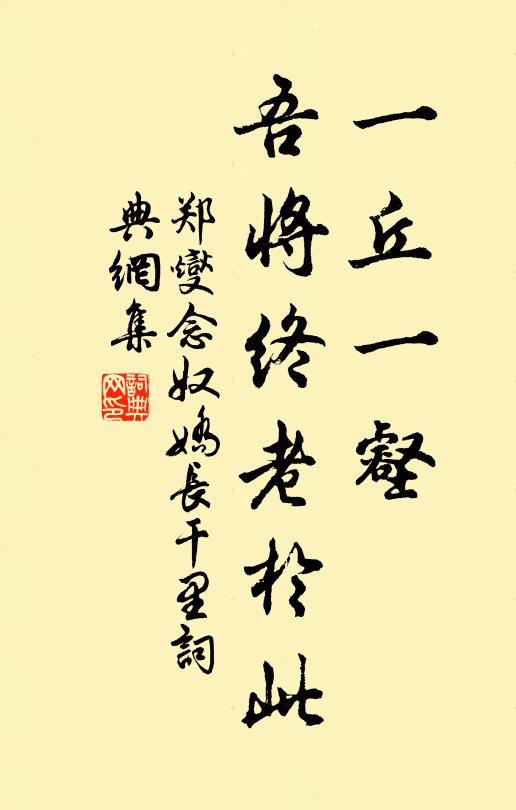 一丘一壑
吾將終老於此
郑燮念奴嬌長干里詞
典網集
詞典
网印